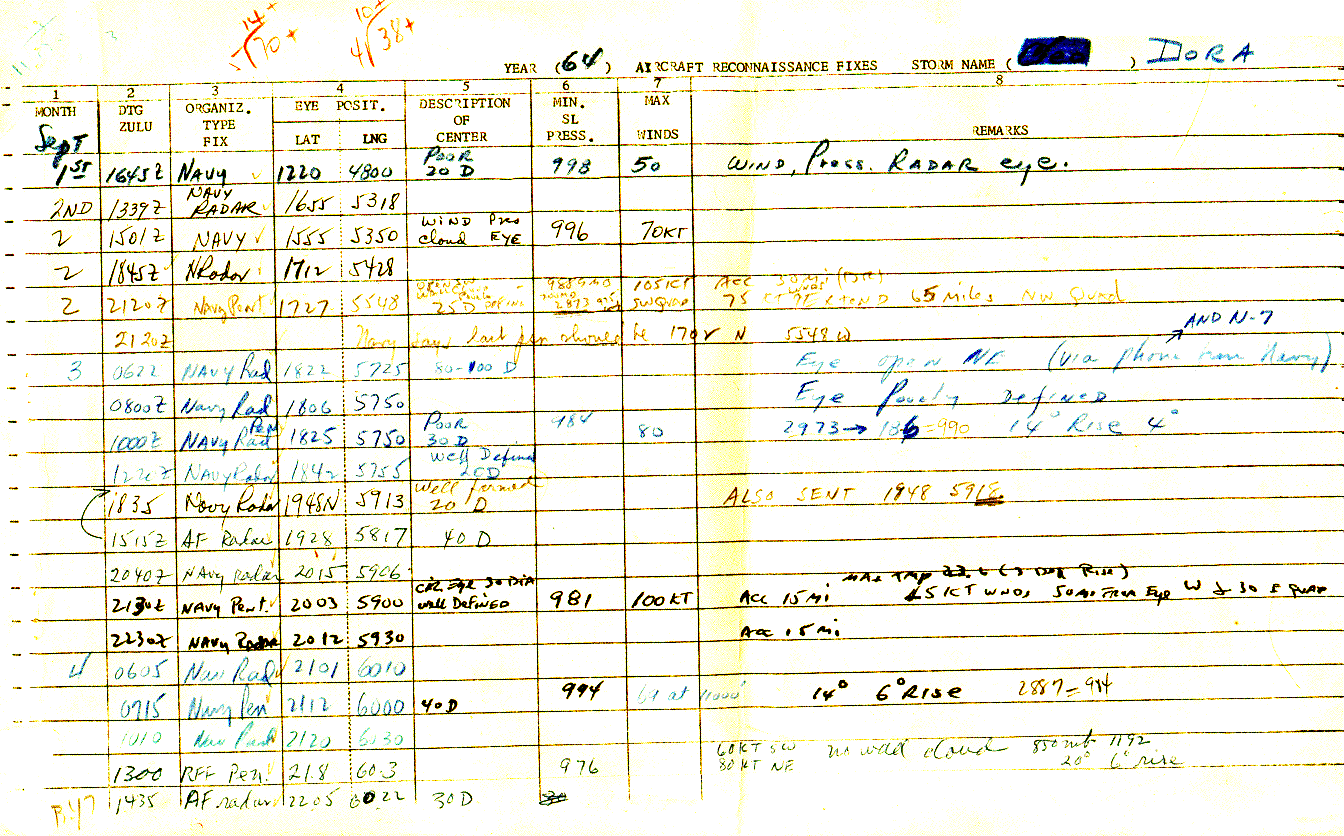 14+
5√70+
10+
4√38+
YEAR (64) AIRCRAFT RECONNAISSANCE FIXES STORM NAME ( ) DORA
1 2 3 4 5 6 7 8
MONTH DTG ZULU ORGANIZ. TYPE FIX EYE POSIT. LAT LNG DESCRIPTION OF CENTER MIN. SL PRESS. MAX WINDS REMARKS
Sept
1ST 1645Z NAVY 1220 4800 POOR 20 D 998 50 WIND, PRESS. RADAR eye.
2ND 1339Z NAVY RADAR 1655 5318
2 1501Z NAVY 1555 5350 WIND Pres cloud EYE 996 70KT
2 1845Z NRadar 1712 5428
2 2120Z Navy Pent 1727 5548 25D 105KT SW QUAD ACC 30 Mi (DR) 75 65 MILES NW Quad
2120Z Navy says last fix should be 1702 N 5548 W
AND N-7
3 0622 NAVY Rad 1822 5725 80-100 D Eye open NE (via phone from Navy)
0800Z Navy Rad 1806 5750 Eye Poorly Defined
1000Z NAVY Rad Pen 1825 5750 POOR 30 D 984 80 2973 → 186=990 14° Rise 4°
1220Z NAVY Radar 1842 5755 Well Defined 20D
1835 Navy Radar 1948N 5913 Well formed 20 D ALSO SENT 1948 5918
1515Z AF Radar 1928 5817 40 D
2040Z NAVY radar 2015 5906
2130Z NAVY Pent. 2003 5900 CIR. Eye 30 DIA well DEFINED 981 100KT ACC 15 Mi MAX TMP (3 DEG RISE) 45 KT WNDS 50 Mi From Eye W & 30 E QUAD
2230Z NAVY Radar 2012 5930 ACC 15 Mi
4 0605 Navy Rad 2101 6010
0715 Navy Pen 2112 6000 40D 994 14° 6° RISE 2887=984
1010 Nav Rad 2120 6030
1300 RFF Pen. 21.8 60.3 976 60KT SW 80KT NE in wall cloud 850mb 1192 20° 6° rise
P.47 1435 AF radar 2205 6022 30D